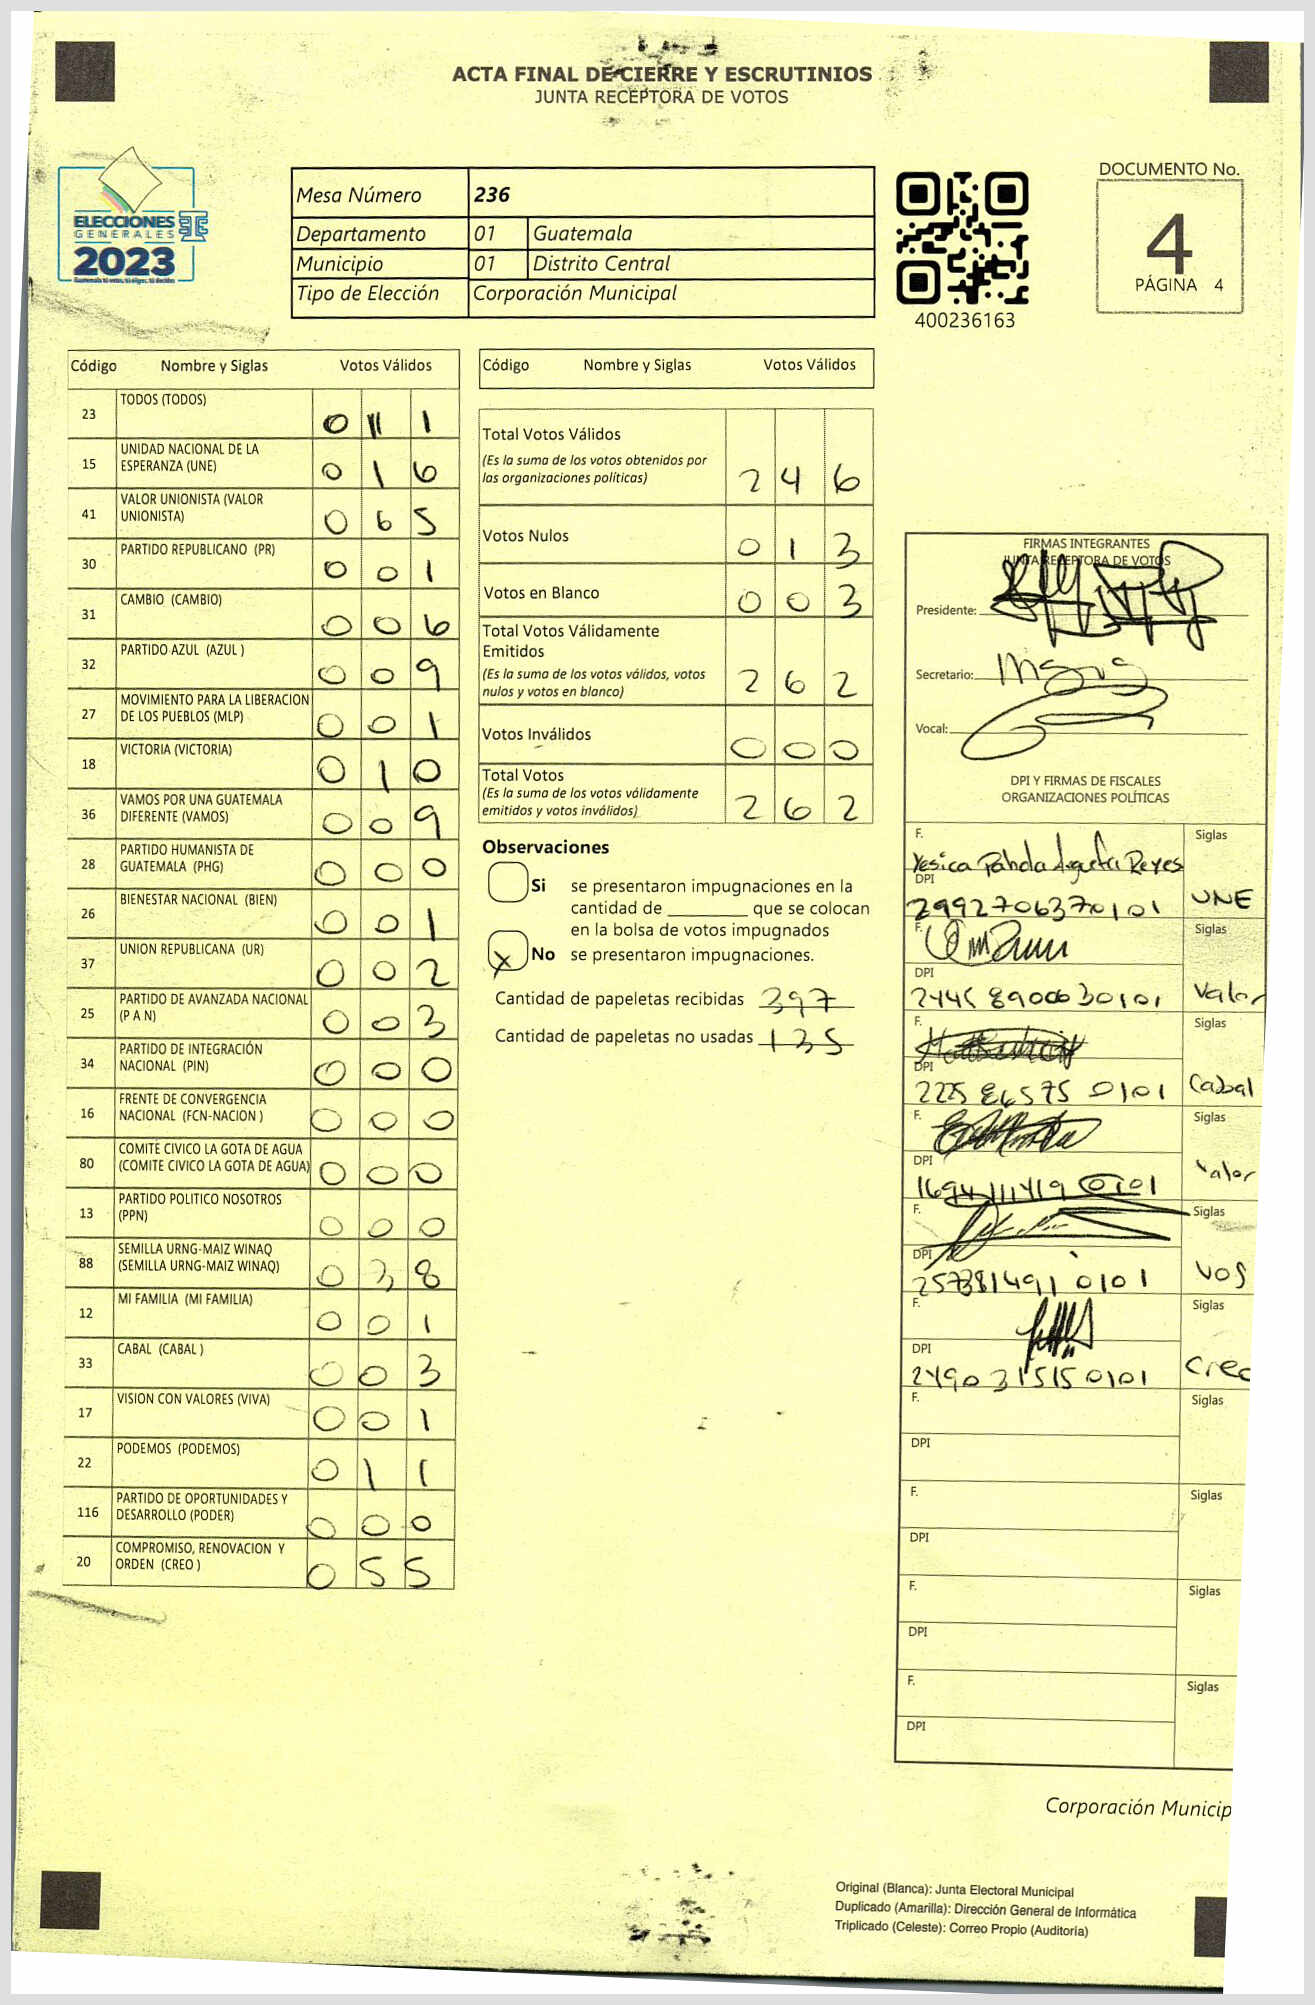 ACTA FINAL DE CIERRE Y ESCRUTINIOS
JUNTA RECEPTORA DE VOTOS
ELECCIONES
GENERALES
2023
Mesa Número 236
Departamento 01 Guatemala
Municipio 01 Distrito Central
Tipo de Elección Corporación Municipal
400236163
DOCUMENTO No.
4
PÁGINA 4
Código Nombre y Siglas Votos Válidos
23 TODOS (TODOS) 0 1 1
15 UNIDAD NACIONAL DE LA ESPERANZA (UNE) 0 1 6
41 VALOR UNIONISTA (VALOR UNIONISTA) 0 6 5
30 PARTIDO REPUBLICANO (PR) 0 0 1
31 CAMBIO (CAMBIO) 0 0 6
32 PARTIDO AZUL (AZUL ) 0 0 9
27 MOVIMIENTO PARA LA LIBERACION DE LOS PUEBLOS (MLP) 0 0 1
18 VICTORIA (VICTORIA) 0 1 0
36 VAMOS POR UNA GUATEMALA DIFERENTE (VAMOS) 0 0 9
28 PARTIDO HUMANISTA DE GUATEMALA (PHG) 0 0 0
26 BIENESTAR NACIONAL (BIEN) 0 0 1
37 UNION REPUBLICANA (UR) 0 0 2
25 PARTIDO DE AVANZADA NACIONAL (P A N) 0 0 3
34 PARTIDO DE INTEGRACIÓN NACIONAL (PIN) 0 0 0
16 FRENTE DE CONVERGENCIA NACIONAL (FCN-NACION ) 0 0 0
80 COMITE CIVICO LA GOTA DE AGUA (COMITE CIVICO LA GOTA DE AGUA) 0 0 0
13 PARTIDO POLITICO NOSOTROS (PPN) 0 0 0
88 SEMILLA URNG-MAIZ WINAQ (SEMILLA URNG-MAIZ WINAQ) 0 3 8
12 MI FAMILIA (MI FAMILIA) 0 0 1
33 CABAL (CABAL ) 0 0 3
17 VISION CON VALORES (VIVA) 0 0 1
22 PODEMOS (PODEMOS) 0 1 1
116 PARTIDO DE OPORTUNIDADES Y DESARROLLO (PODER) 0 0 0
20 COMPROMISO, RENOVACION Y ORDEN (CREO ) 0 5 5
Código Nombre y Siglas Votos Válidos
Total Votos Válidos
(Es la suma de los votos obtenidos por
las organizaciones políticas) 2 4 6
Votos Nulos 0 1 3
Votos en Blanco 0 0 3
Total Votos Válidamente
Emitidos
(Es la suma de los votos válidos, votos
nulos y votos en blanco) 2 6 2
Votos Inválidos 0 0 0
Total Votos
(Es la suma de los votos válidamente
emitidos y votos inválidos) 2 6 2
Observaciones
Si se presentaron impugnaciones en la
cantidad de ________ que se colocan
en la bolsa de votos impugnados
X No se presentaron impugnaciones.
Cantidad de papeletas recibidas 397
Cantidad de papeletas no usadas 135
FIRMAS INTEGRANTES
JUNTA RECEPTORA DE VOTOS
Presidente:
Secretario:
Vocal:
DPI Y FIRMAS DE FISCALES
ORGANIZACIONES POLÍTICAS
F. Siglas
Yesica Reyes
DPI 2992706370101 UNE
F. Siglas
DPI 8900630101 Valor
F. Siglas
DPI 0101 Cabal
F. Siglas
DPI Valor
F. Siglas
DPI 257381491 0101 VOS
F. Siglas
DPI 2490315150101 Creo
F. Siglas
DPI
F. Siglas
DPI
F. Siglas
DPI
F. Siglas
DPI
Corporación Municip
Original (Blanca): Junta Electoral Municipal
Duplicado (Amarilla): Dirección General de Informática
Triplicado (Celeste): Correo Propio (Auditoría)